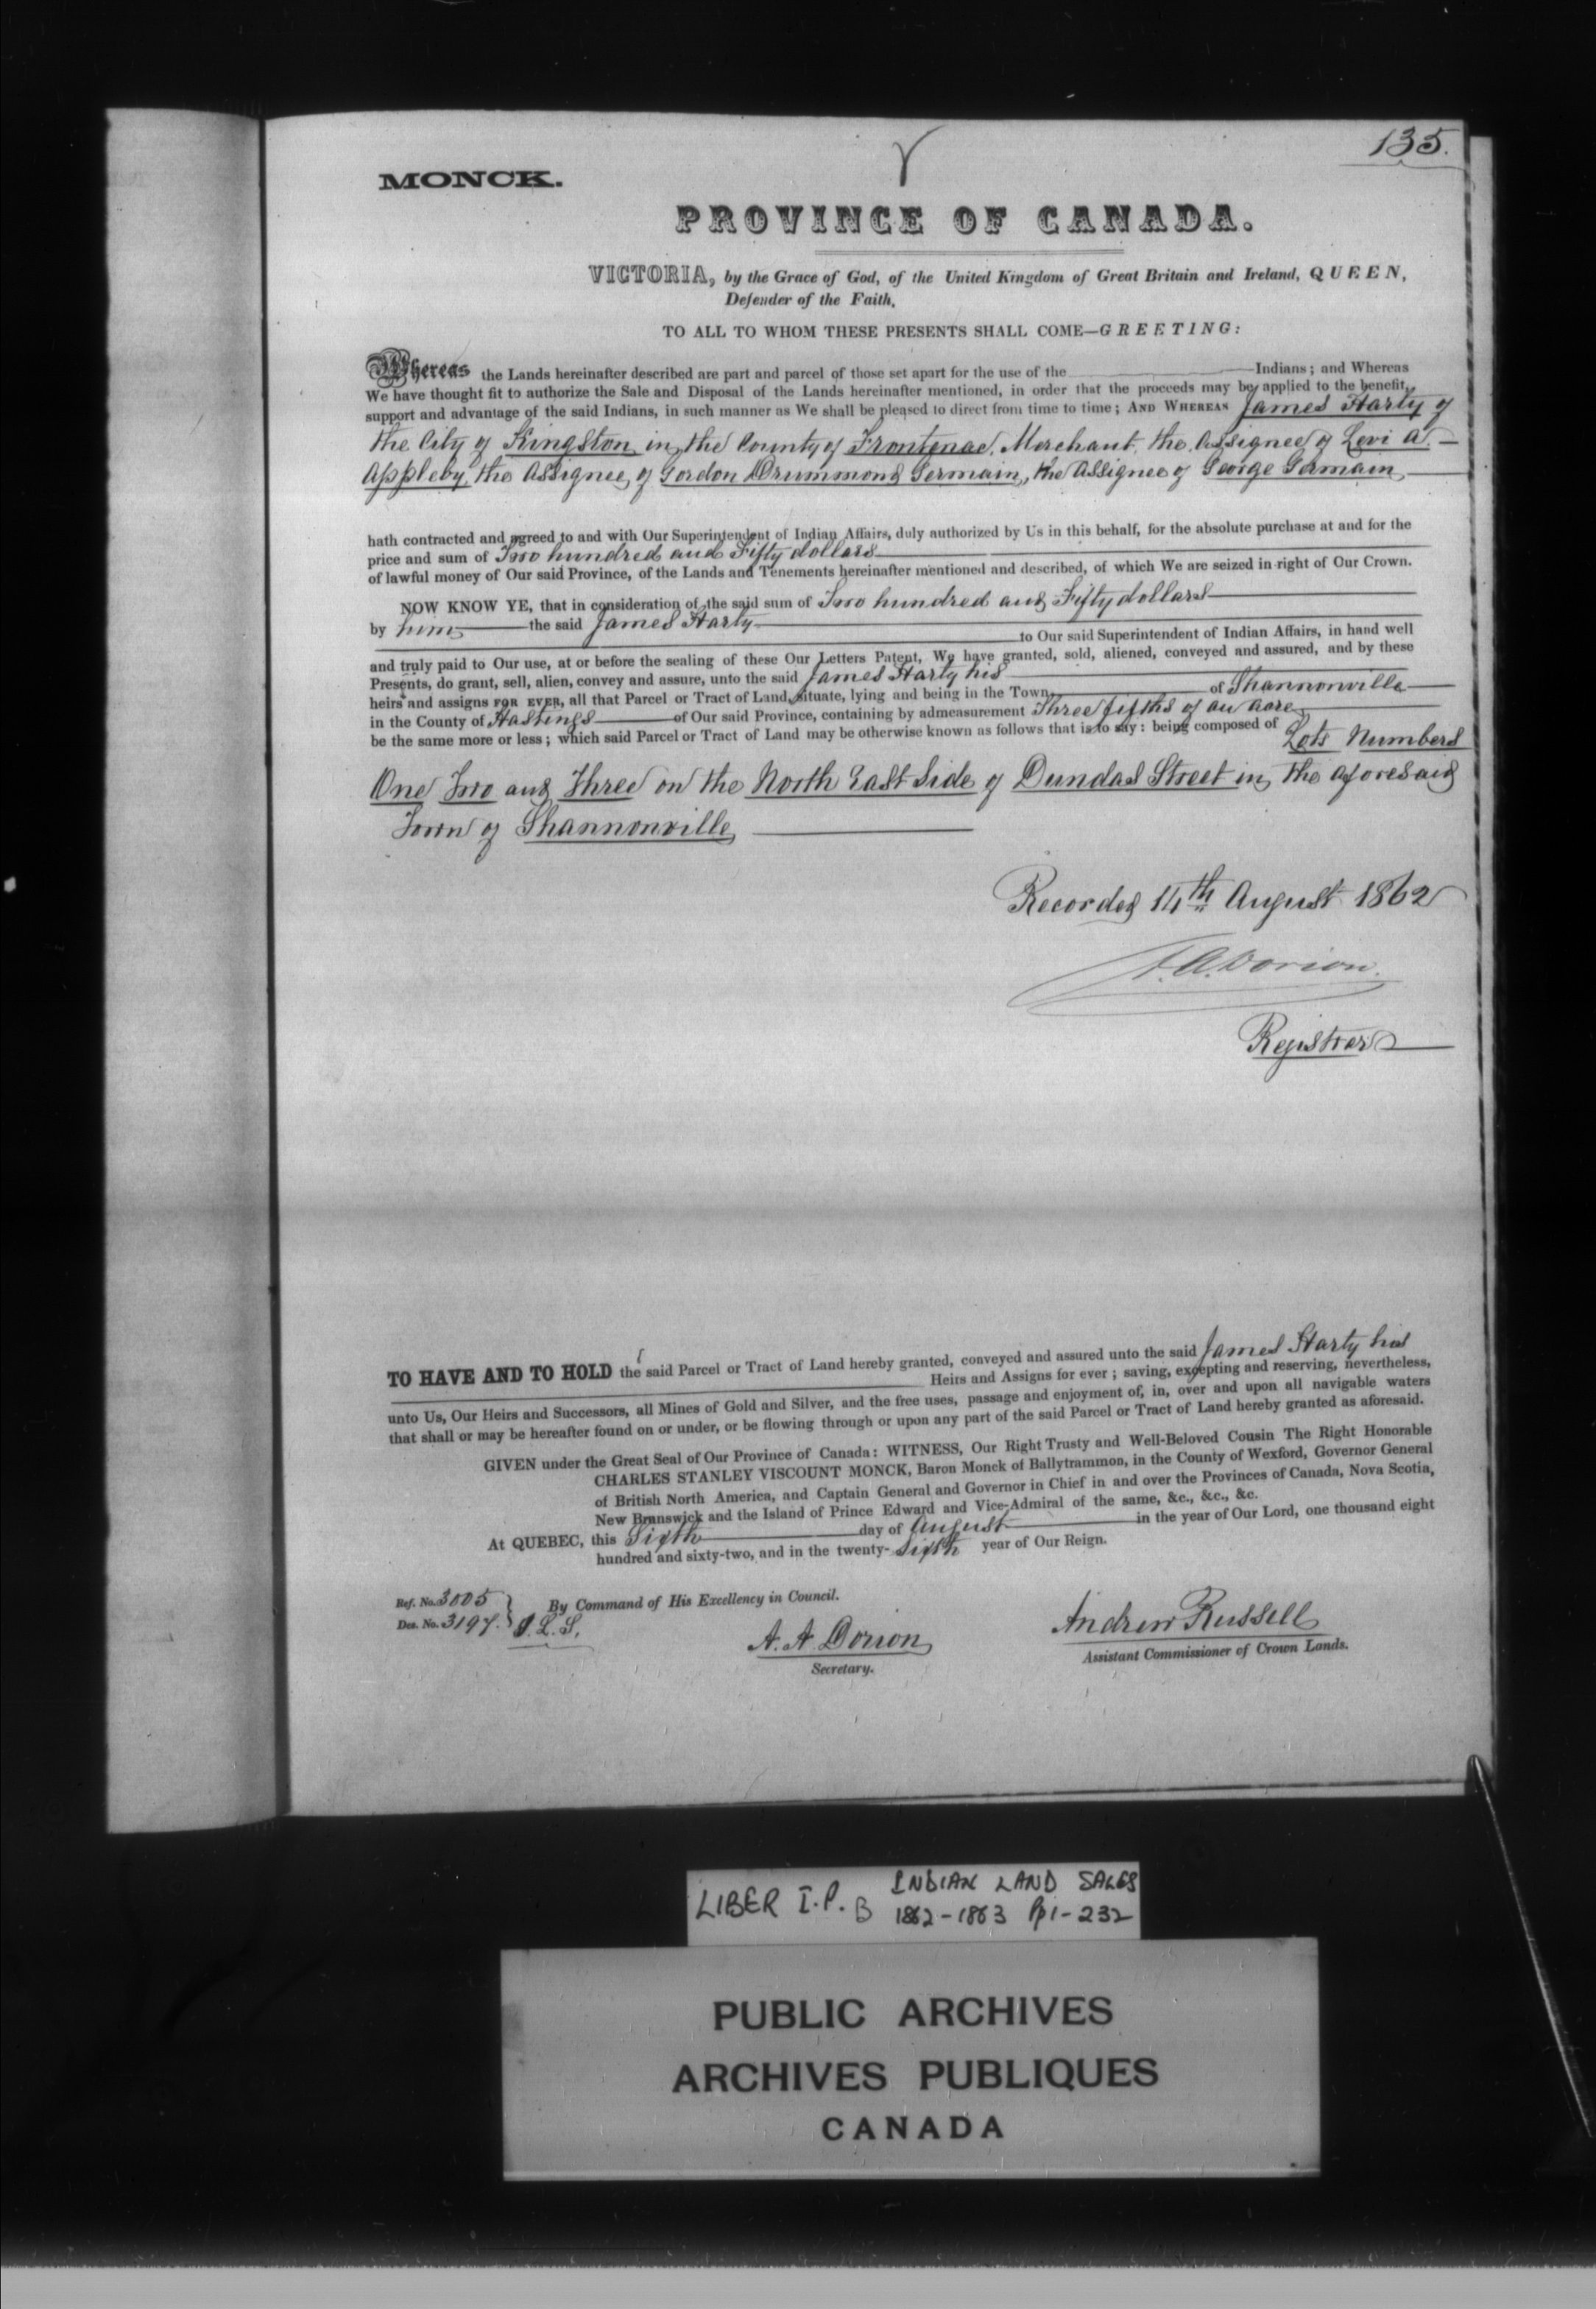 135.
MONCK.
PROVINCE OF CANADA.
VICTORIA, by the Grace of God, of the United Kingdom of Great Britain and Ireland, QUEEN,
Defender of the Faith,
TO ALL TO WHOM THESE PRESENTS SHALL COME—GREETING:
Whereas the Lands hereinafter described are part and parcel of those set apart for the use of the Indians; and Whereas
We have thought fit to authorize the Sale and Disposal of the Lands hereinafter mentioned, in order that the proceeds may be applied to the benefit,
support and advantage of the said Indians, in such manner as We shall be pleased to direct from time to time; AND WHEREAS James Harty of
the City of Kingston, in the County of Frontenac, Merchant, the Assignee of Levi A.
Appleby, the Assignee of Gordon Drummond Germain, the Assignee of George Germain
hath contracted and agreed to and with Our Superintendent of Indian Affairs, duly authorized by Us in this behalf, for the absolute purchase at and for the
price and sum of Two hundred and Fifty dollars
of lawful money of Our said Province, of the Lands and Tenements hereinafter mentioned and described, of which We are seized in right of Our Crown.
NOW KNOW YE, that in consideration of the said sum of Two hundred and Fifty dollars
by him the said James Harty
to Our said Superintendent of Indian Affairs, in hand well
and truly paid to Our use, at or before the sealing of these Our Letters Patent, We have granted, sold, aliened, conveyed and assured, and by these
Presents, do grant, sell, alien, convey and assure, unto the said James Harty his
heirs and assigns FOR EVER, all that Parcel or Tract of Land, situate, lying and being in the Town of Shannonville
in the County of Hastings of Our said Province, containing by admeasurement Three fifths of an acre
be the same more or less; which said Parcel or Tract of Land may be otherwise known as follows that is to say: being composed of Lots Numbers
One Two and Three on the North East side of Dundas Street in the aforesaid
Town of Shannonville
Recorded 14th August 1862
A. A. Dorion.
Registrar
TO HAVE AND TO HOLD the said Parcel or Tract of Land hereby granted, conveyed and assured unto the said James Harty his
Heirs and Assigns for ever; saving, excepting and reserving, nevertheless,
unto Us, Our Heirs and Successors, all Mines of Gold and Silver, and the free uses, passage and enjoyment of, in, over and upon all navigable waters
that shall or may be hereafter found on or under, or be flowing through or upon any part of the said Parcel or Tract of Land hereby granted as aforesaid.
GIVEN under the Great Seal of Our Province of Canada: WITNESS, Our Right Trusty and Well-Beloved Cousin The Right Honorable
CHARLES STANLEY VISCOUNT MONCK, Baron Monck of Ballytrammon, in the County of Wexford, Governor General
of British North America, and Captain General and Governor in Chief in and over the Provinces of Canada, Nova Scotia,
New Brunswick and the Island of Prince Edward and Vice-Admiral of the same, &c., &c., &c.
At QUEBEC, this Sixth day of August in the year of Our Lord, one thousand eight
hundred and sixty-two, and in the twenty-sixth year of Our Reign.
Ref. No. 3005
Des. No. 3197.
By Command of His Excellency in Council.
A. A. Dorion
Secretary.
Andrew Russell
Assistant Commissioner of Crown Lands.
LIBER I.P. B INDIAN LAND SALES
1862-1863 Pp 1-232
PUBLIC ARCHIVES
ARCHIVES PUBLIQUES
CANADA